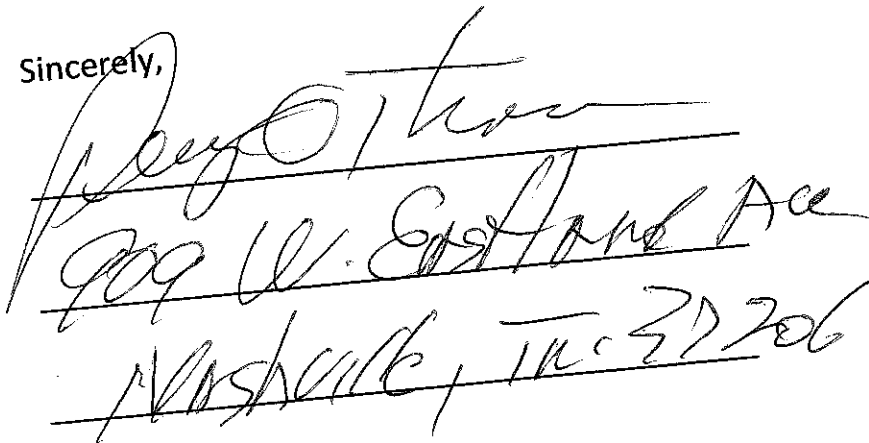 Sincerely,
909 W. Eastland Ave
Nashville, Tn. 37206